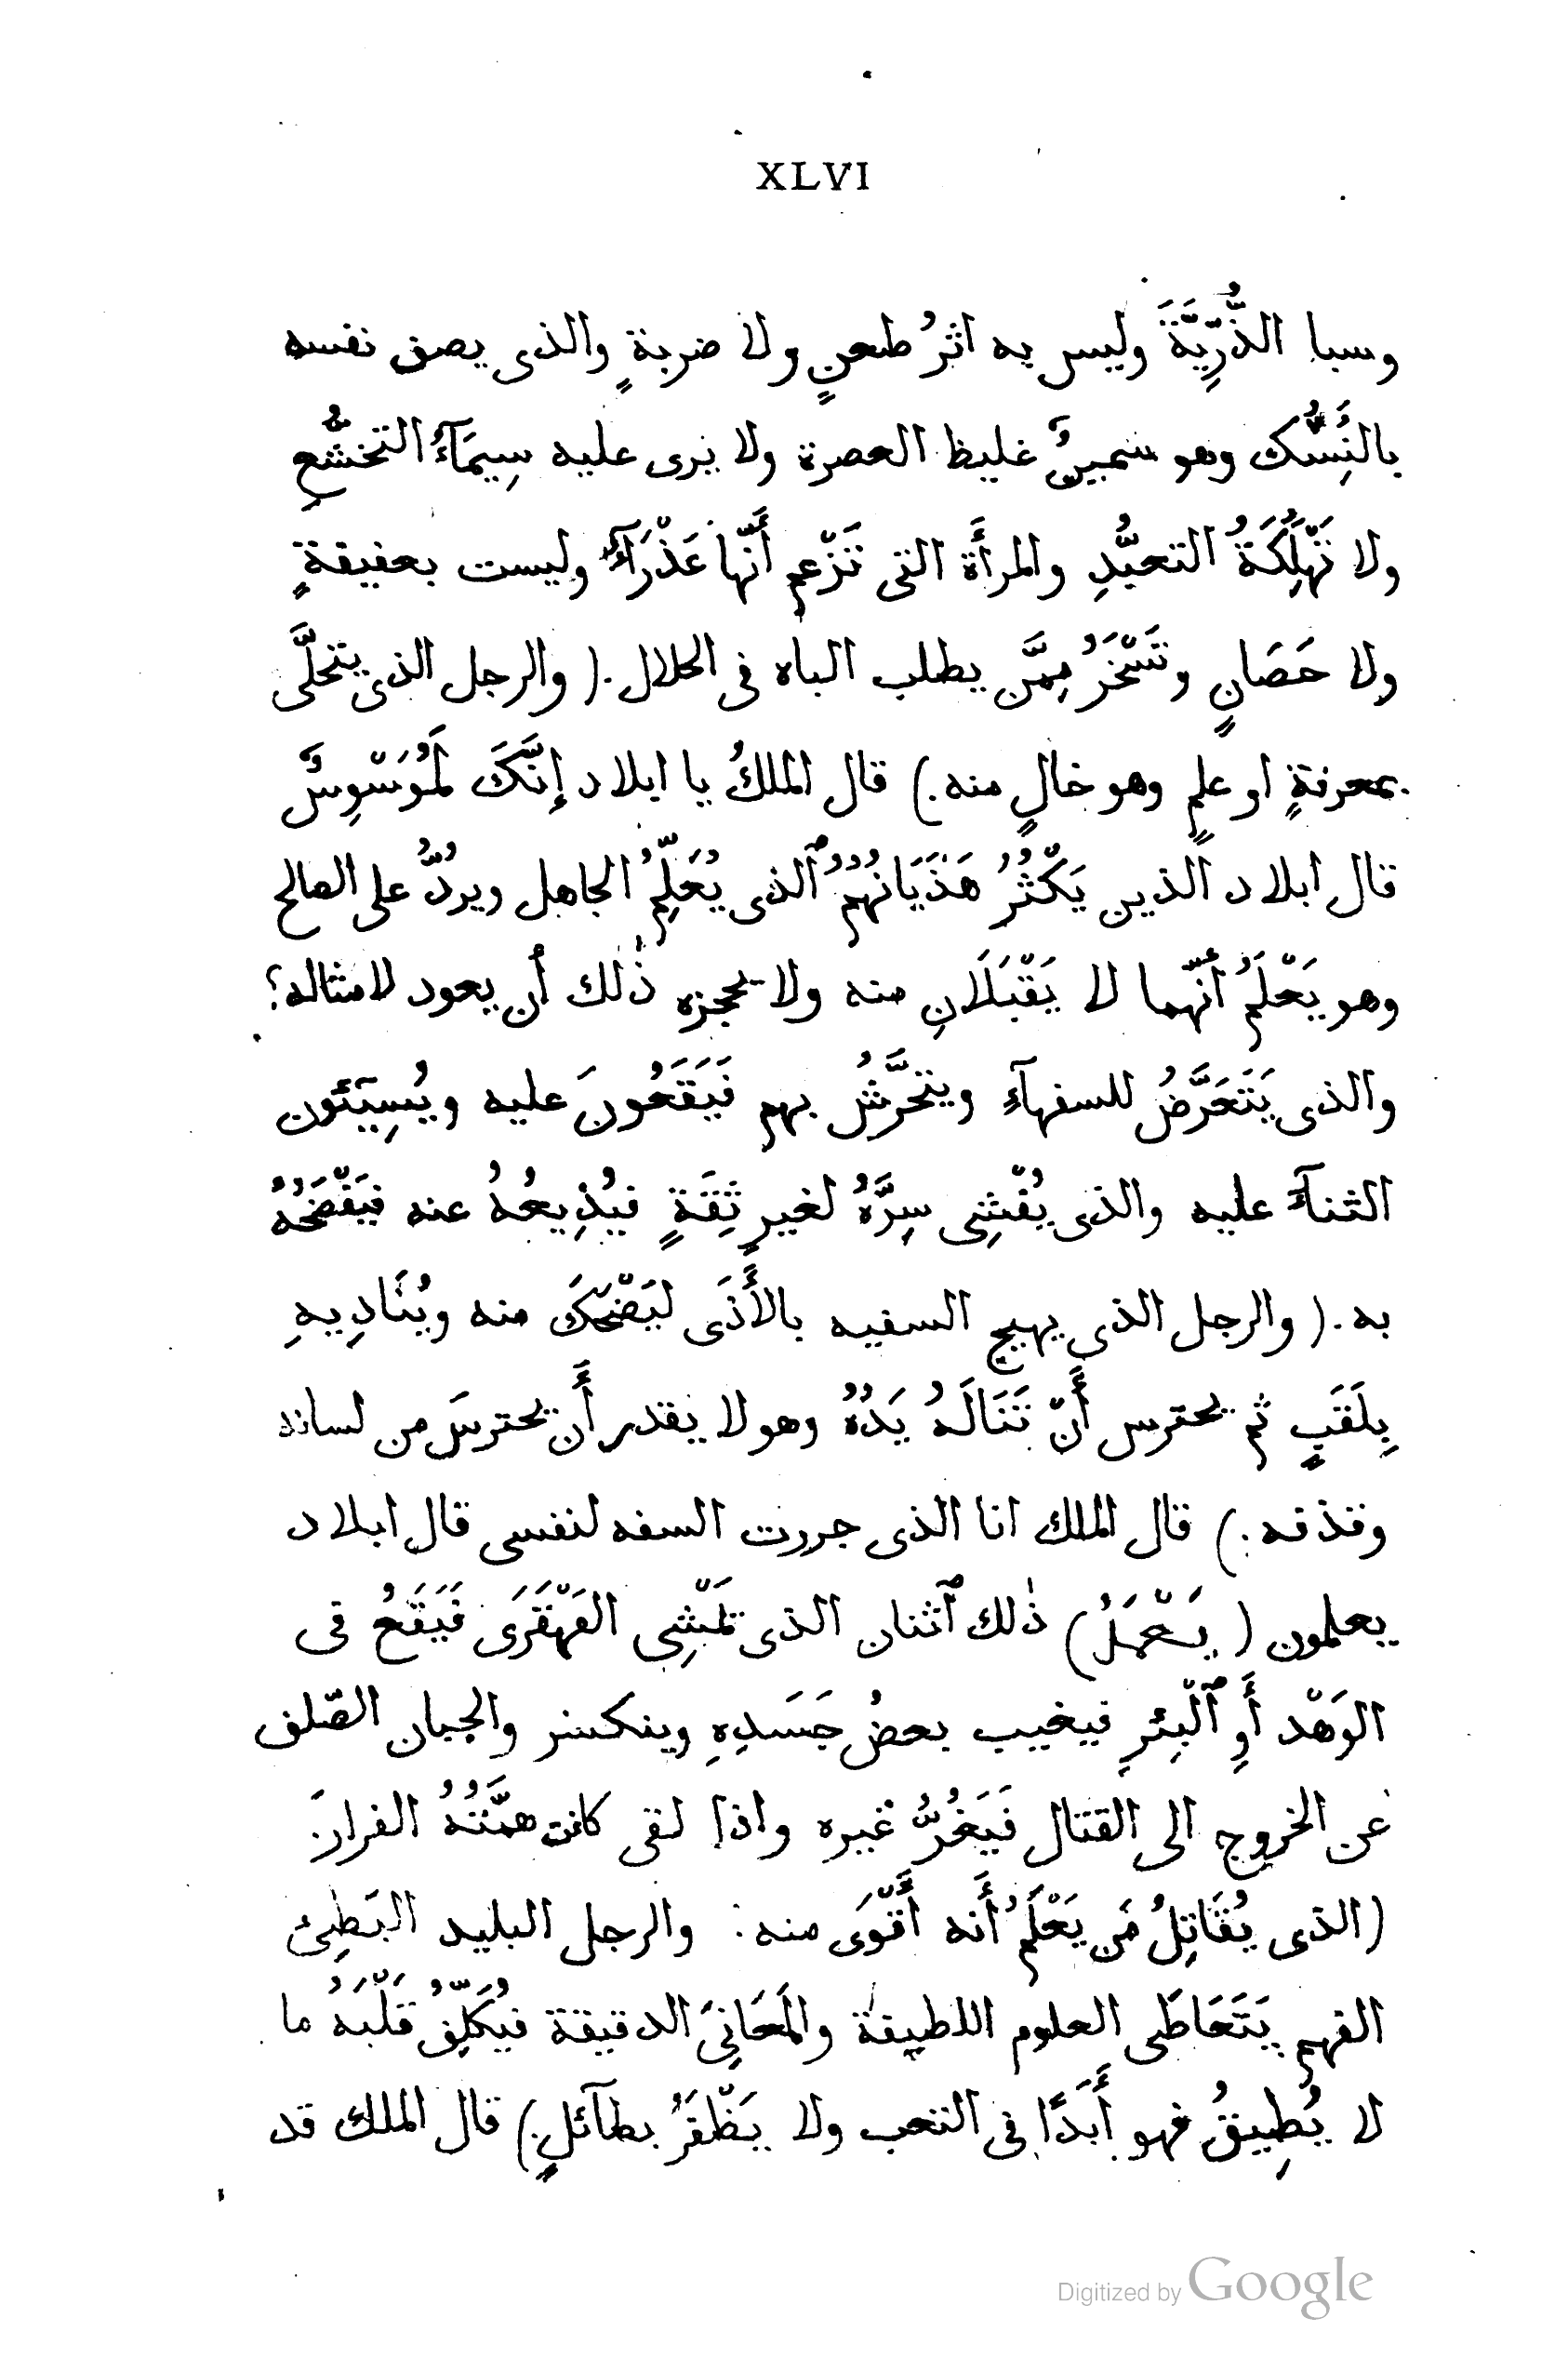 XLVI
وسبا الذُّرِّيَّةَ وليس به اثرُ طعنٍ ولا ضربةٍ والذى يصف نفسه
بالنُِسُّك وهو سمينٌ غليظ العصرة ولا يرى عليه سِيمَآءُ التخشُّعِ
ولا تَهْلَُِكَةُ التعبُّدِ والمرأَة التى تَزْعم أَنّها عَذْرَآءُ وليست بعفيفةٍ
ولا حَصَانٍ وتَسْخَرُ مِمَّن يطلب الباه فى الحلال. (والرجل الذى يتحلَّى
بمعرفةٍ او علمٍ وهو خالٍ منه.) قال الملكُ يا ابلاد إِنَّكَ لَمُوَسْوِسٌ
قال ابلاد الذين يَكْثُرُ هَذَيَانُهُمُ ٱلذى يُعَلِّمُ الجاهل ويردُّ على الصالح
وهو يَعْلَمُ أَنّهما لا يَقْبَلَانِ منه ولا يحجزه ذٰلك أن يعود لامثاله؟
والذى يَتَعَرَّضُ للسفهآءِ ويتحَّرشُ بهم فَيَقَعُونَ عليه ويُسِيَٓئون
الثنآءَ عليه والذى يُفْشِى سِرَّهُ لغيرِ ثِقَةٍ فيُذِيعُهُ عنه فيَفْضَحُهُ
به. (والرجل الذى يهيج السفيه بالأَذَى ليَضْحَكَ منه ويُنَادِيهِ
بِلَقَبٍ ثم يحترس أَنْ تَنَالَهُ يَدُهُ وهو لا يقدر أَن يحترسَ من لسانه
وقذفه.) قال الملك انا الذى جررت السفه لنفسى قال ابلاد
يعلمون (يَعْمَلُ) ذٰلك ٱثنان الذى تَمْشِى القَهْقَرَى فَيَقَعُ فى
الوَهْد أَوِ ٱلْبِئرِ فيغيب بعضُ جَسَدِهِ وينكسر والجبان الصّلف
عن الخروج الى القتال فَيَغُرُّ غيره واذا لقى كانت همَّتُهُ الفرارَ
(الذى يُقَاتِلُ مَن يَعْلَمُ أَنه أَقْوَى منه: والرجل البليد البَطِئ
الفهم يَتَعَاطَى العلوم اللطيفة والمَعَانِىَ الدقيقة فيُكَلِّفُ قَلْبَهُ ما
لا يُطِيقُ فهو أَبَدًا فى التعب ولا يَظْفَرُ بطآئلٍ.) قال الملك قد
Digitized by Google